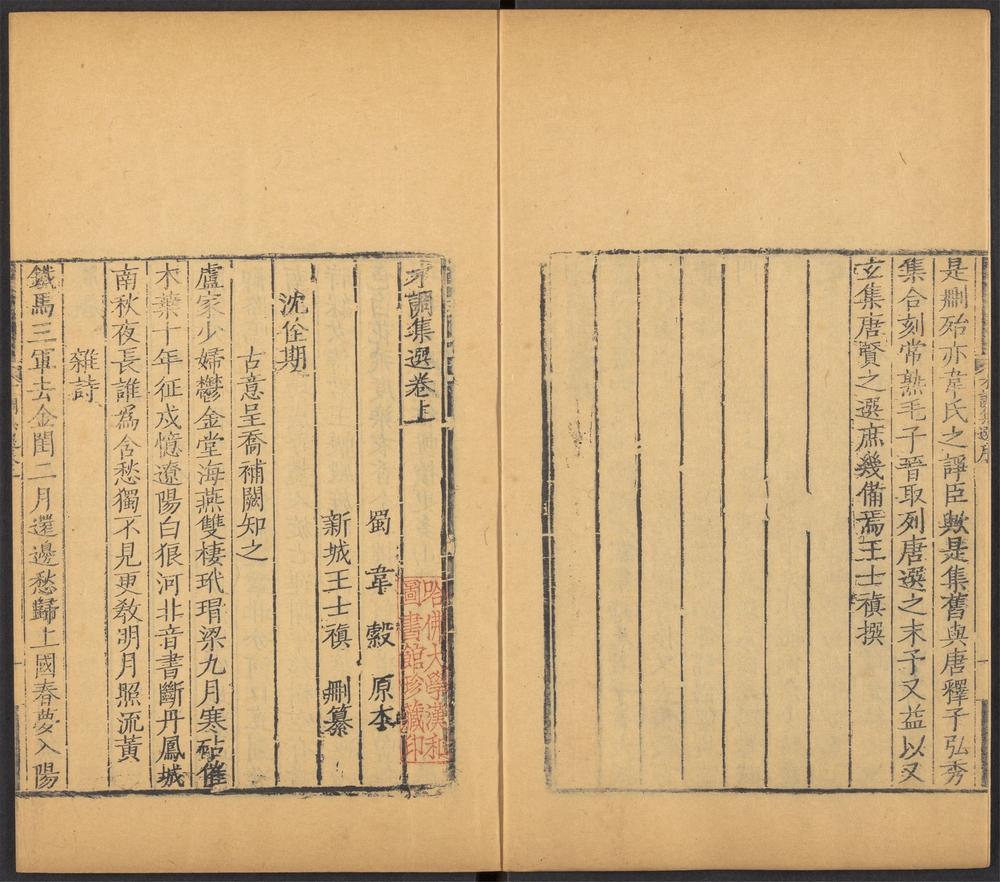 是刪殆亦韋氏之諍臣歟是集舊與唐釋子弘秀
集合刻常熟毛子晉取列唐選之末予又益以又
玄集唐賢之選庶幾備焉王士禛撰
才調集選卷上
蜀韋縠原本
新城王士禛刪纂
沈佺期
古意呈喬補闕知之
盧家少婦鬱金堂海燕雙棲玳瑁梁九月寒砧催
木葉十年征戍憶遼陽白狼河北音書斷丹鳳城
南秋夜長誰為含愁獨不見更教明月照流黃
雜詩
鐵馬三軍去金閨二月還邊愁歸上國春夢入陽
哈佛大學漢和
圖書館珍藏印